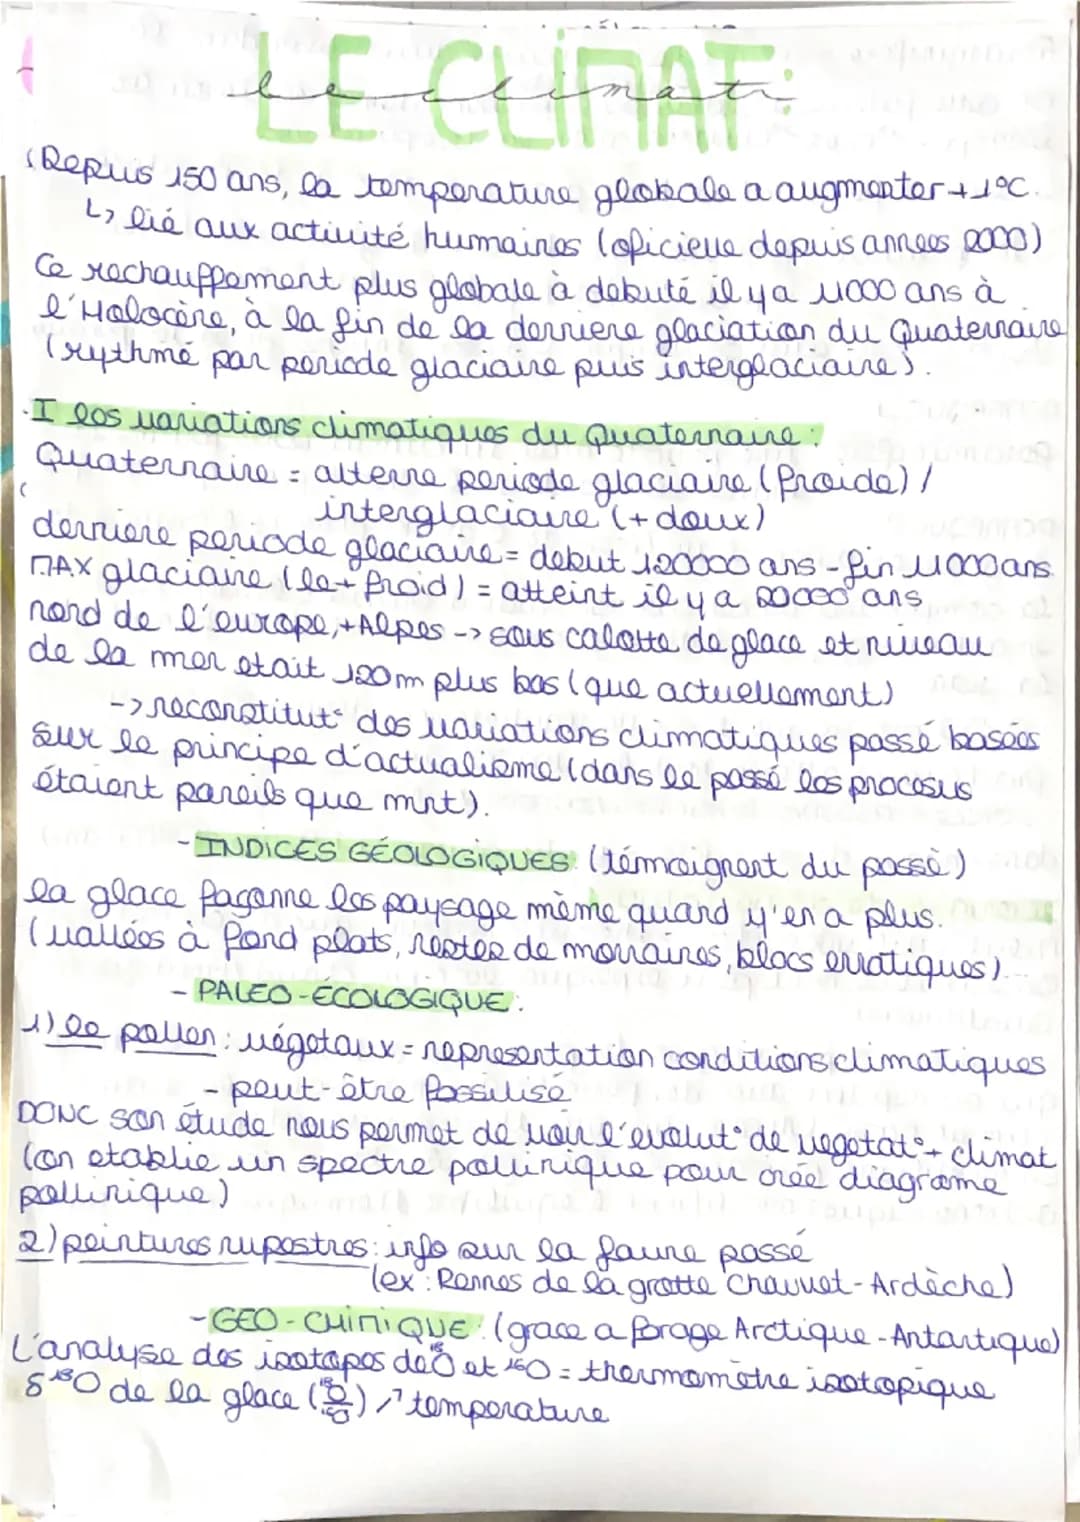 LE CLIMAT:
le climat:
Depuis 150 ans, la température globale a augmenter +1°C.
↳ lié aux activité humaines (oficielle depuis annees 2000)
Ce rechauffement plus globale à debuté il y a 11000 ans à
l'Holocène, à la fin de la derniere glaciation du Quaternaire
(rythmé par periode glaciaire puis interglaciaire).
I les variations climatiques du Quaternaire:
Quaternaire = alterne periode glaciaire (froide) /
interglaciaire (+ doux)
derniere periode glaciaire = debut 120000 ans - fin 11000 ans
MAX glaciaire (le + froid) = atteint il y a 20000 ans
nord de l'europe, + Alpes -> sous calotte de glace et niveau
de la mer etait 120m plus bas (que actuellement)
-> reconstitut° des variations climatiques passé basées
sur le principe d'actualisme (dans le passé les procosus
étaient pareils que mnt).
- INDICES GÉOLOGIQUES: (témoignent du passé)
la glace façonne les paysage même quand y'en a plus.
(vallées à fond plats, restes de morraines, blocs erratiques).
- PALEO-ÉCOLOGIQUE:
1) le pollen: végétaux = representation conditions climatiques
- peut-être fossilisé
DONC son étude nous permet de voir l'evolut° de vegetat° + climat
(on etablie un spectre pollinique pour créer diagrame
pollinique)
2) peintures rupestres: info sur la faune passé
(ex: Rennes de la grotte Chauvet - Ardèche)
- GEO-CHIMIQUE: (grace a forage Arctique - Antartique)
L'analyse des isotopes de ¹⁸O et ¹⁶O = thermomètre isotopique
δ¹⁸O de la glace (¹⁸O/¹⁶O) ↗ température